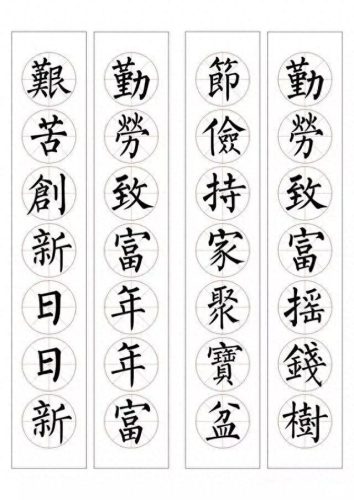 勤勞致富摇錢樹
節儉持家聚寶盆
勤勞致富年年富
艱苦創新日日新